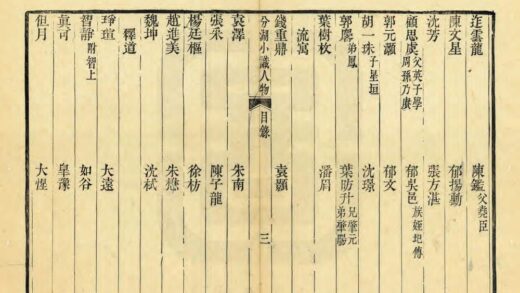 迮雲龍 陳鑑父堯臣
陳文星 郁揚勳
沈芳 張方湛
顧思虞父英子學周孫乃賡 郁吳邑族姪圯傳
郭元灝 郁文
胡一珠子星垣 沈璟
郭麐弟鳳 葉昉升兄肇元弟肇
葉樹枚 潘眉
流寓
錢重鼎 袁顥
分湖小識人物 目錄 三
袁澤 朱南
張采 陳子龍
楊廷樞 徐枋
趙進美 朱懋
魏坤 沈栻
釋道
琤瑄 大遠
智靜附智上 如谷
真可
但月 大惺